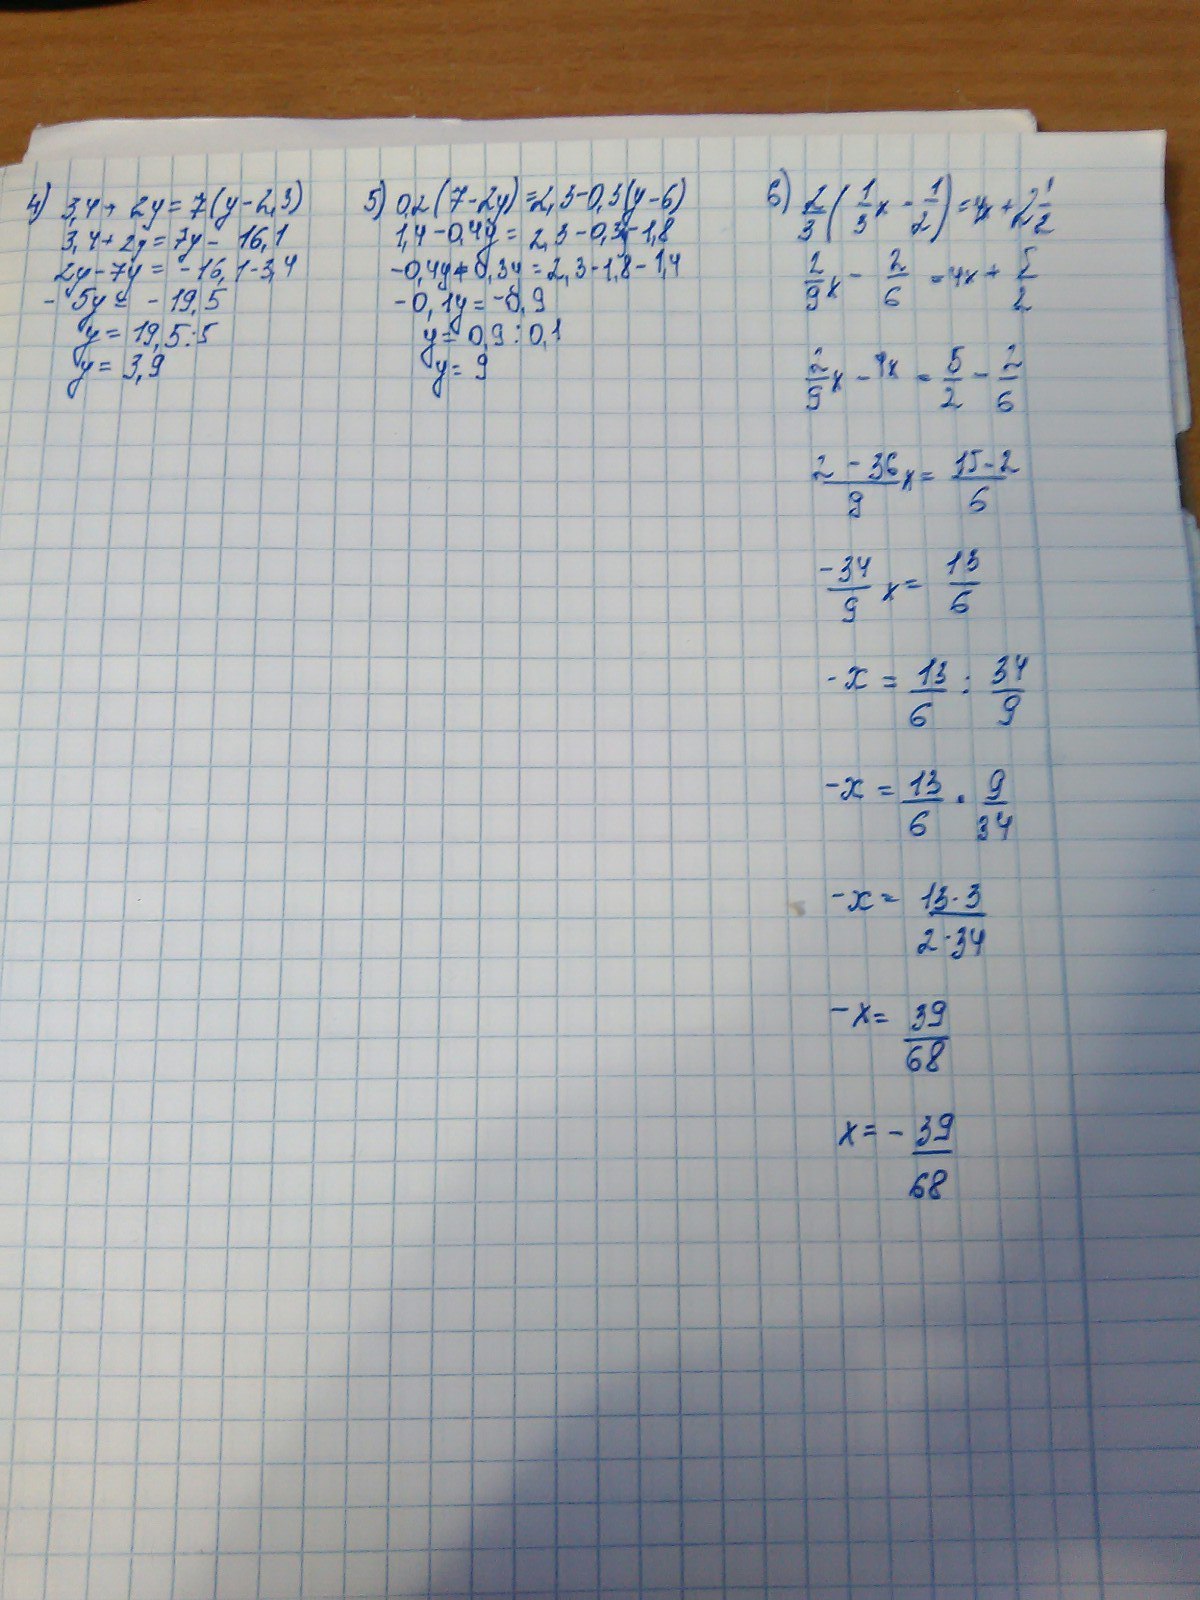 4) 3,4 + 2y = 7(y - 2,3)
3,4 + 2y = 7y - 16,1
2y - 7y = -16,1 - 3,4
-5y = -19,5
y = 19,5 : 5
y = 3,9
5) 0,2(7 - 2y) = 2,3 - 0,3(y - 6)
1,4 - 0,4y = 2,3 - 0,3y - 1,8
-0,4y + 0,3y = 2,3 - 1,8 - 1,4
-0,1y = -0,9
y = 0,9 : 0,1
y = 9
6) 2/3 (1/3 x - 1/2) = 4x + 2 1/2
2/9 x - 2/6 = 4x + 5/2
2/9 x - 4x = 5/2 - 2/6
(2 - 36)/9 x = (15 - 2)/6
-34/9 x = 13/6
-x = 13/6 : 34/9
-x = 13/6 · 9/34
-x = (13 · 3)/(2 · 34)
-x = 39/68
x = - 39/68